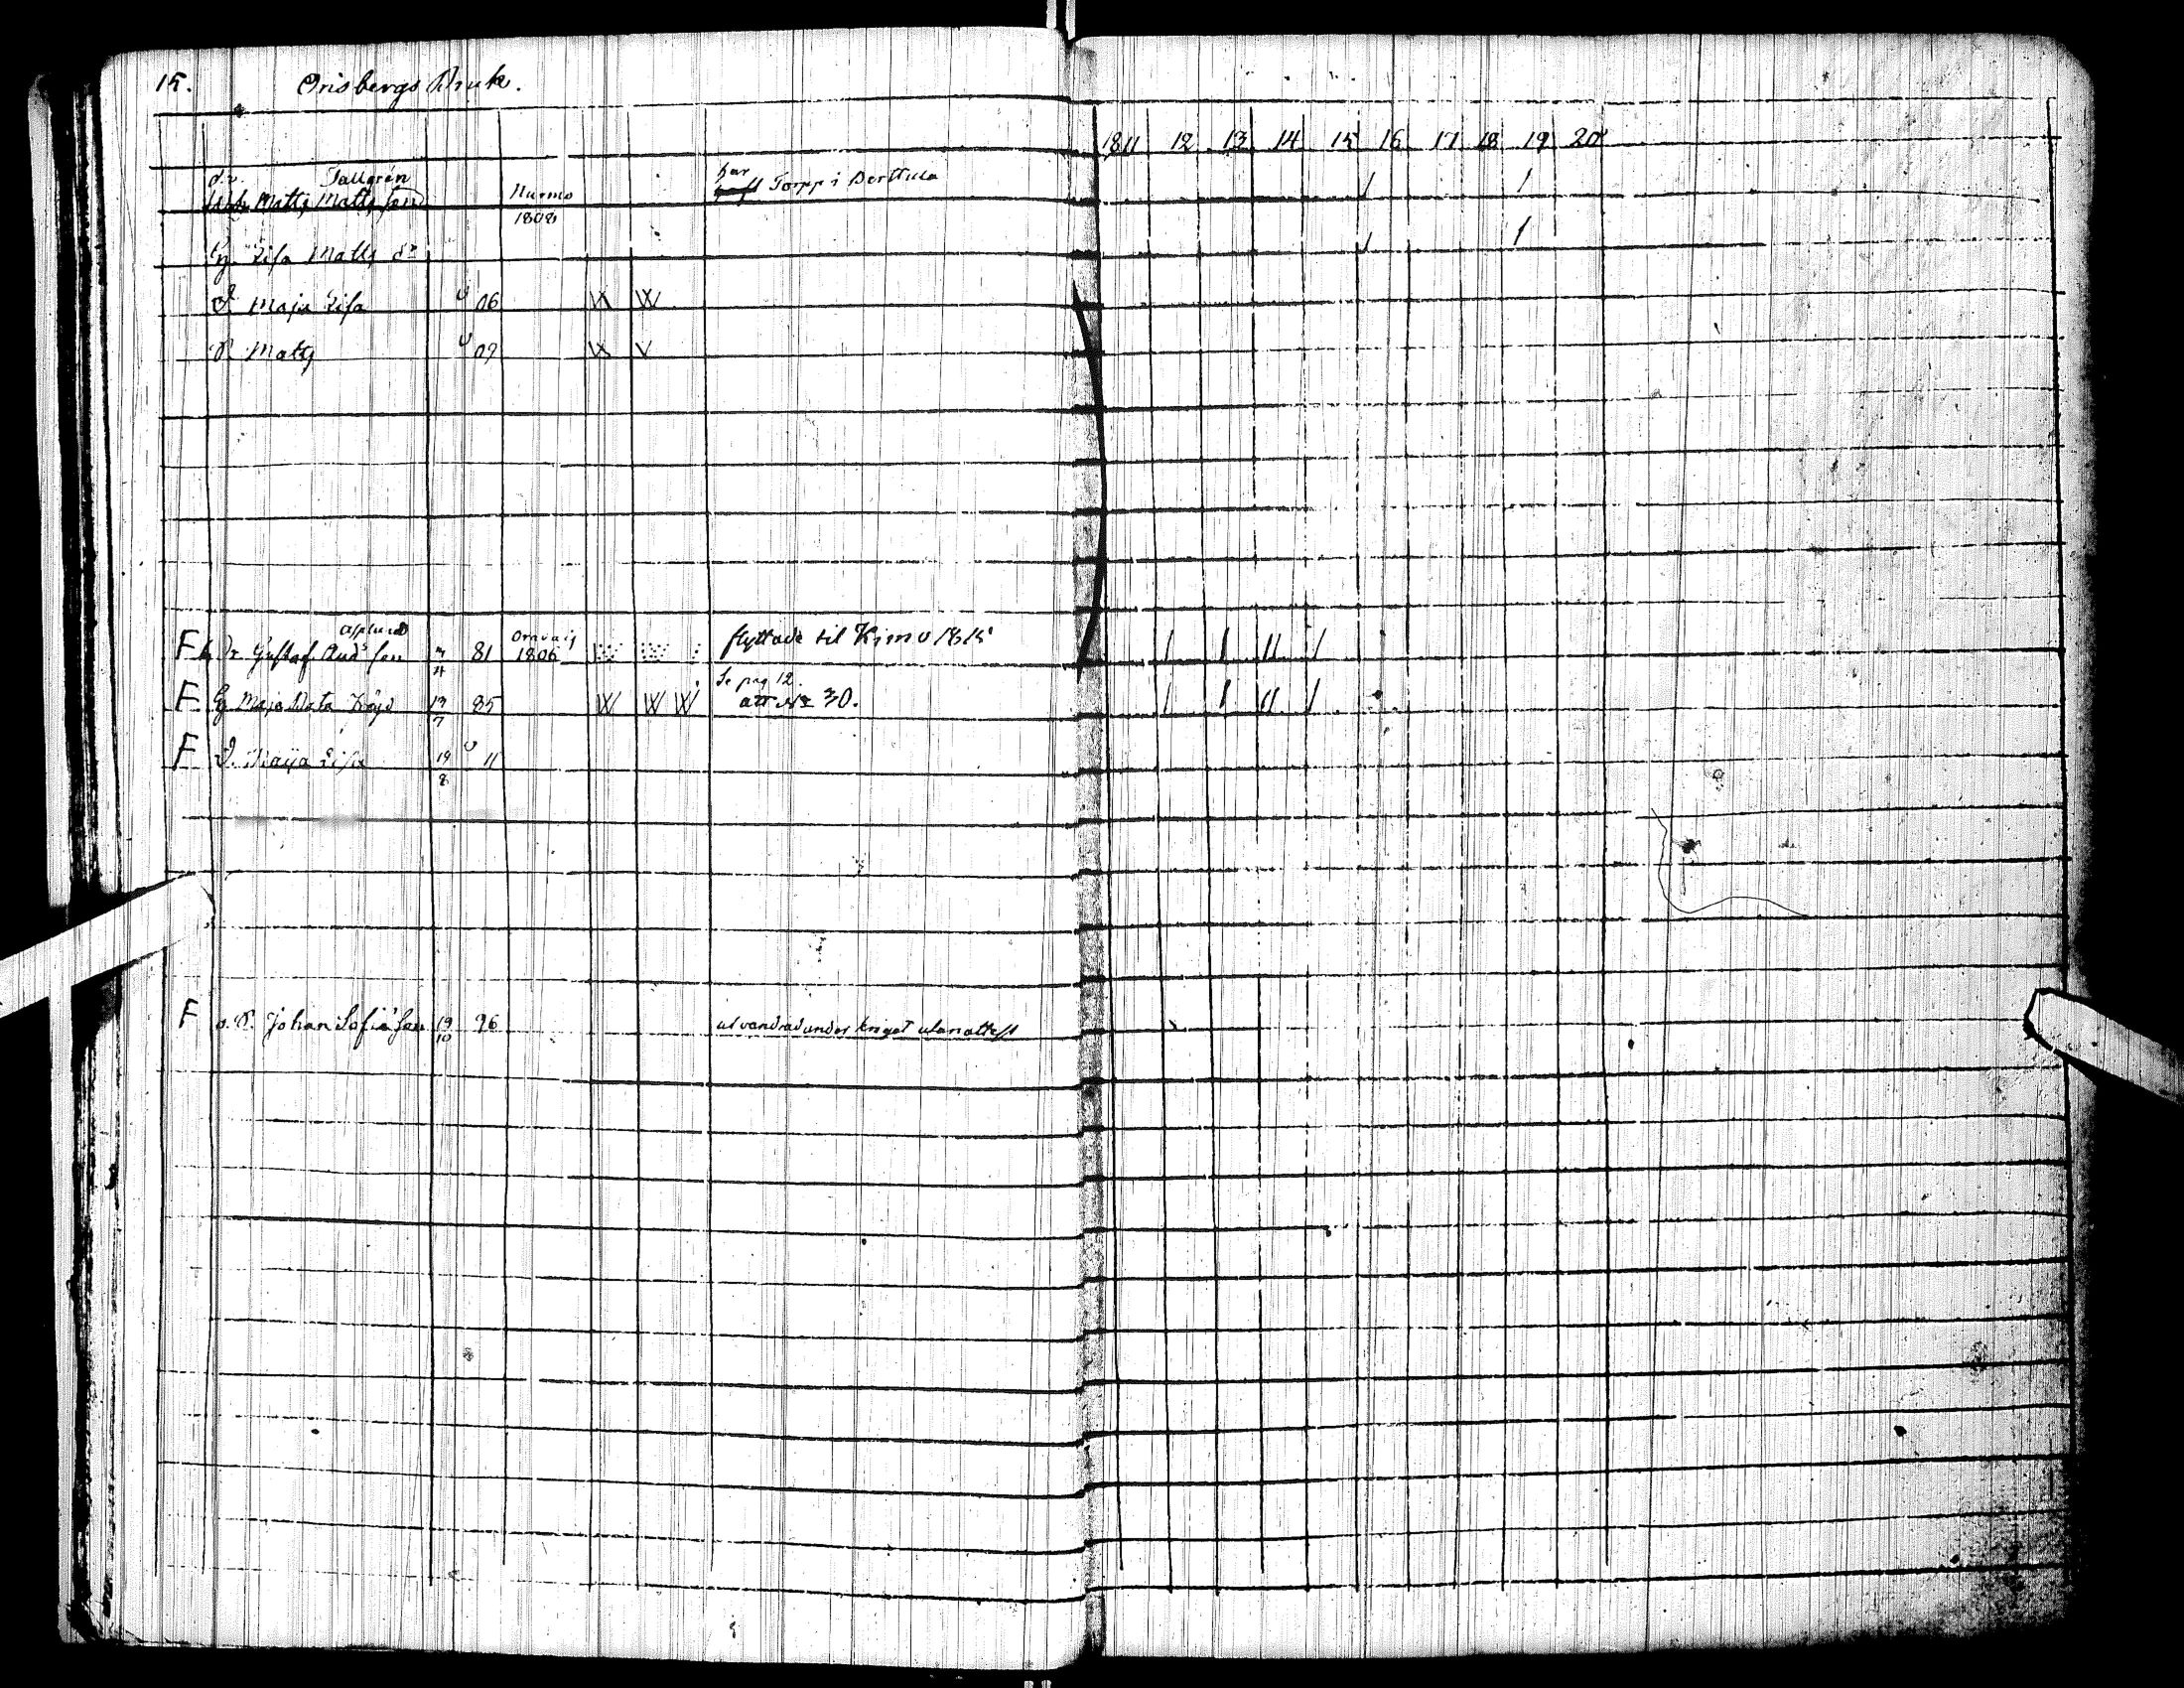 15. Orisbergs Bruk.
1811 12 13 14 15 16 17 18 19 20
d.v. Tallgren har
Matts Matts son Nurmo Torpp i Berttula 1 1
1808
Hu Lisa Matts dr 1 1
D Maja Lisa 06
S. Matts 07
Asplund Oravais
F Dr Gustaf And son 4 81 1806 flyttade til Kimo 1815 1 1 11 1
Se pag 12.
F Maja Kajs 13/7 85 att No 30. 1 1 11 1
F D. Maija Lisa 19/8 11
F o.S. Johan Sofiæ son 19/10 96 utvandrad under kriget utan attest